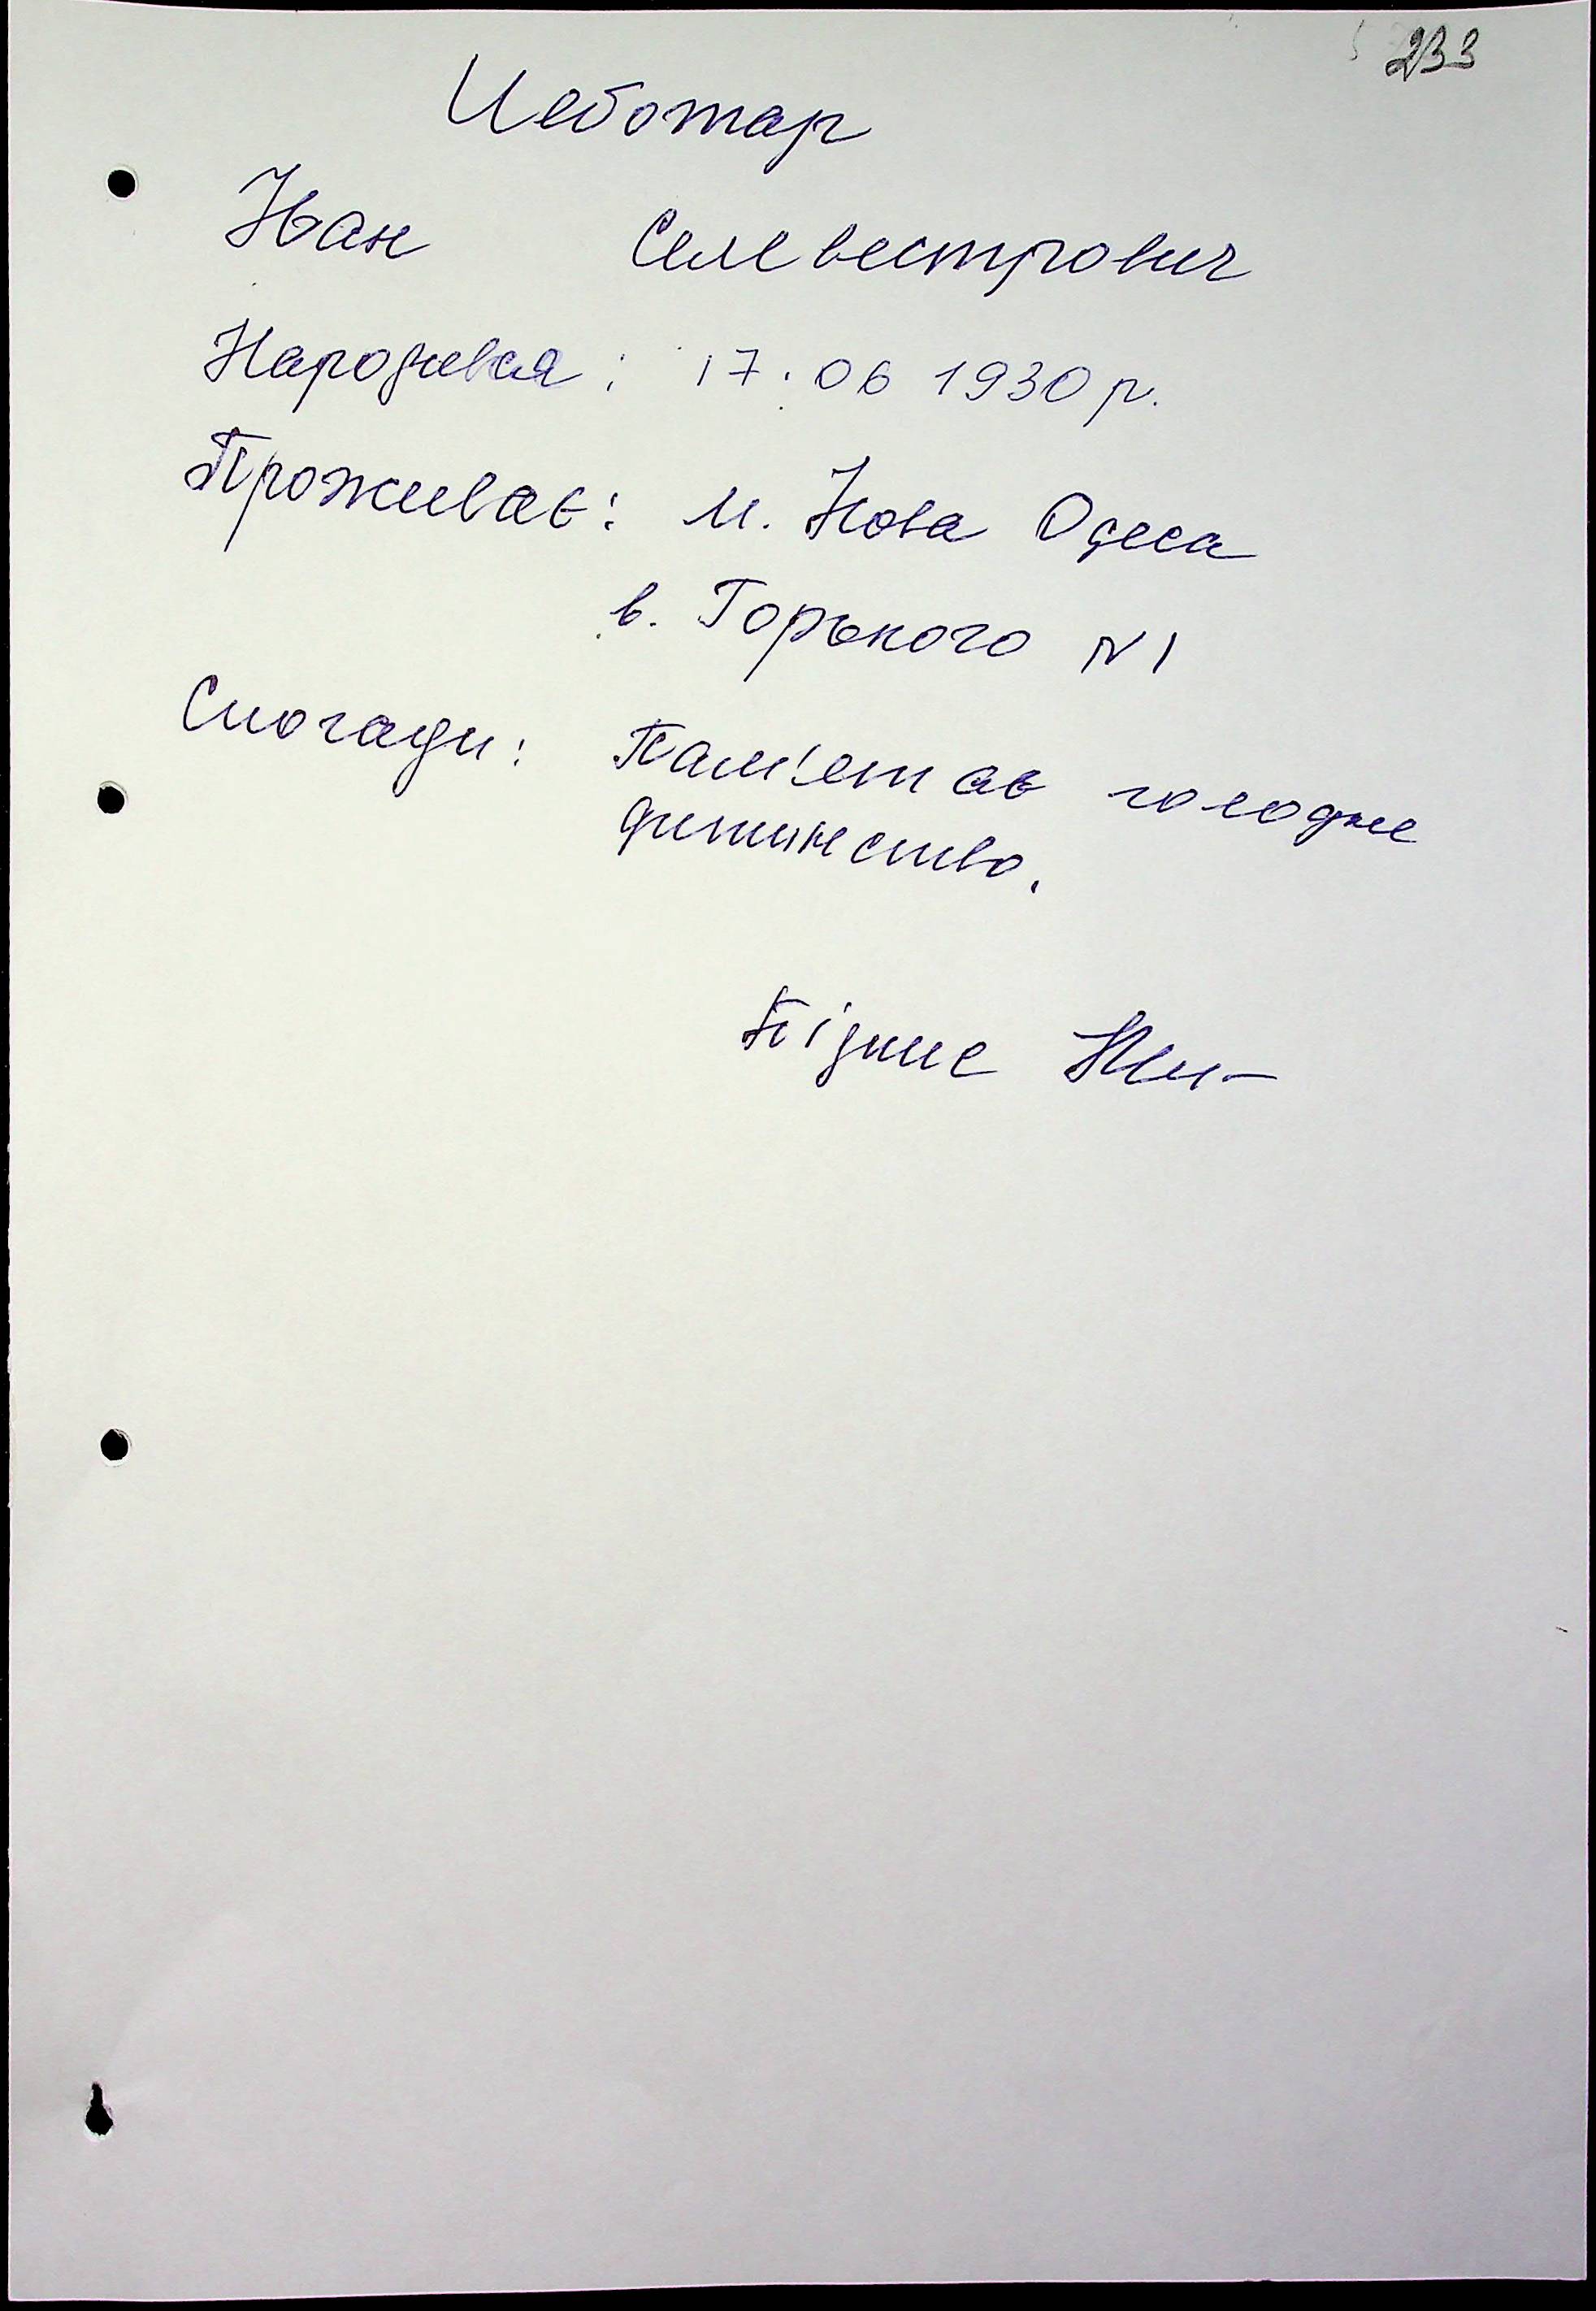 233
Чеботар
Іван Селевестрович
Народився: 17.06 1930 р.
Проживає: м. Нова Одеса
в. Горького N1
Спогади: Пам'етає голодне
дитинство.
Підпис